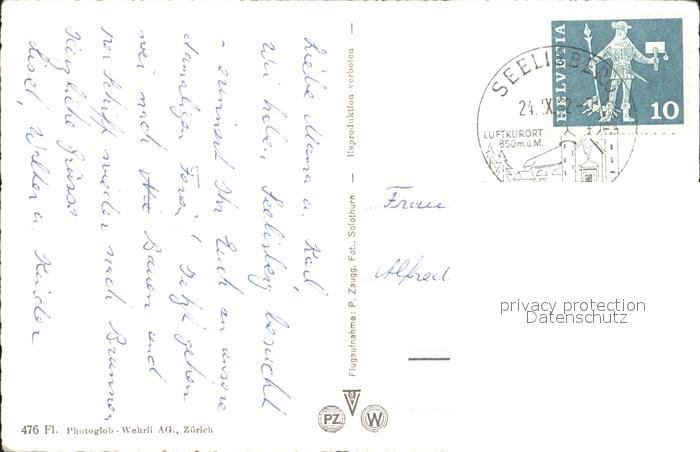 Liebe Mama u. Karl
Wir haben Seelisberg besucht
- erinnert Ihr Euch an unsere
damaligen Ferien? Jetzt gehen
wir nach Bauen und
per Schiff weiter nach Brunnen
Herzliche Grüsse
Liesel, Walter u. Kinder
476 Fl. Photoglob - Wehrli AG., Zürich
Flugaufnahme: P. Zaugg, Fot., Solothurn — Reproduktion verboten —
PZ
W
HELVETIA
10
SEELISBERG
24. IX.
LUFTKURORT
850 m.ü.M.
Frau
Alfred
privacy protection
Datenschutz